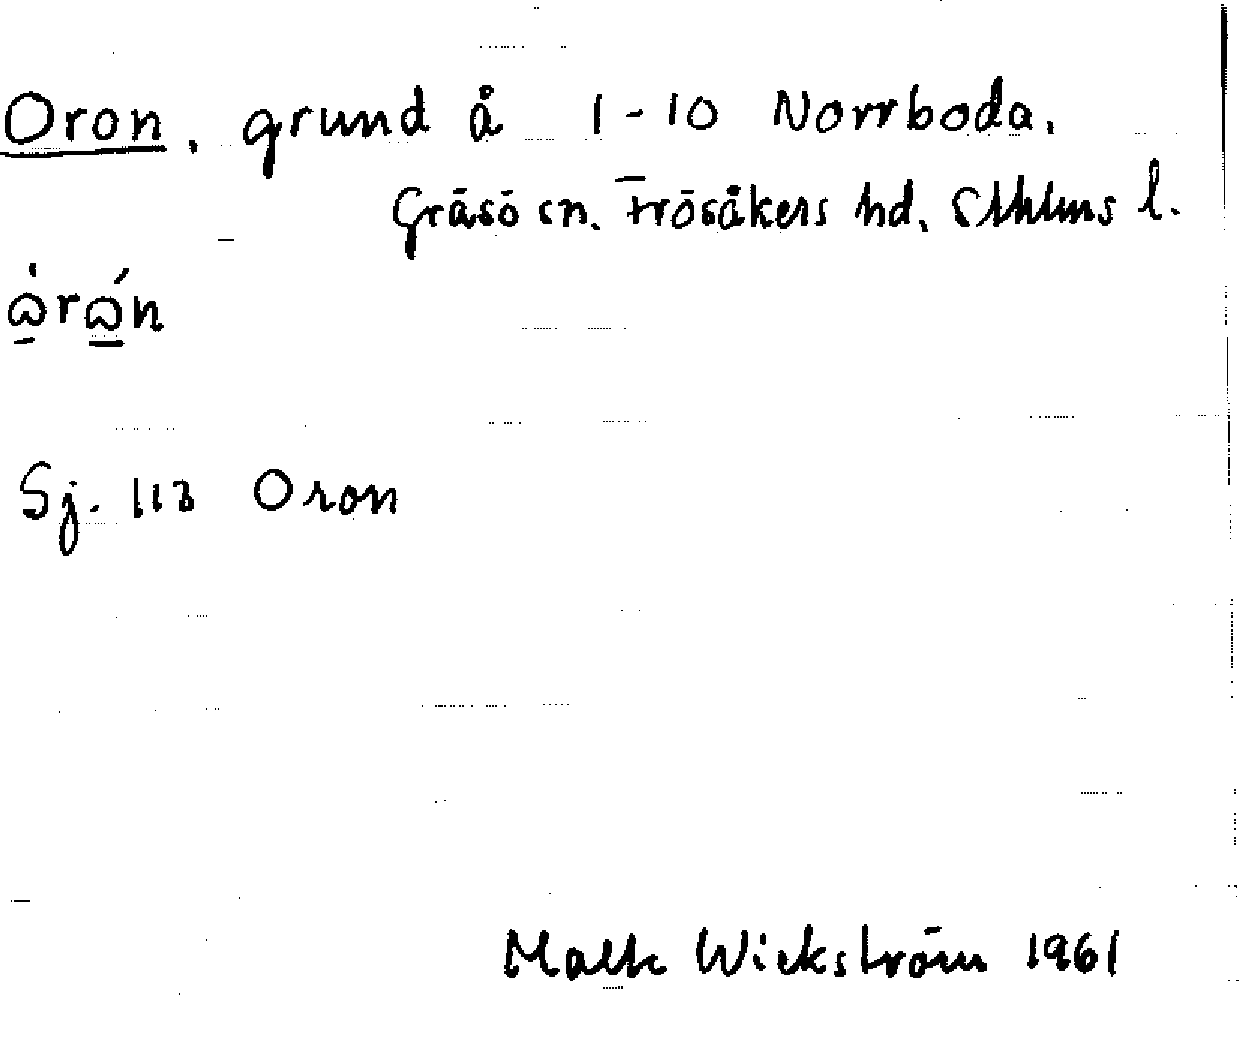 Oron, grund å 1-10 Norrboda.
Gräsö sn. Frösåkers hd. Sthlms l.
Sj. 113 Oron
Malte Wickström 1961